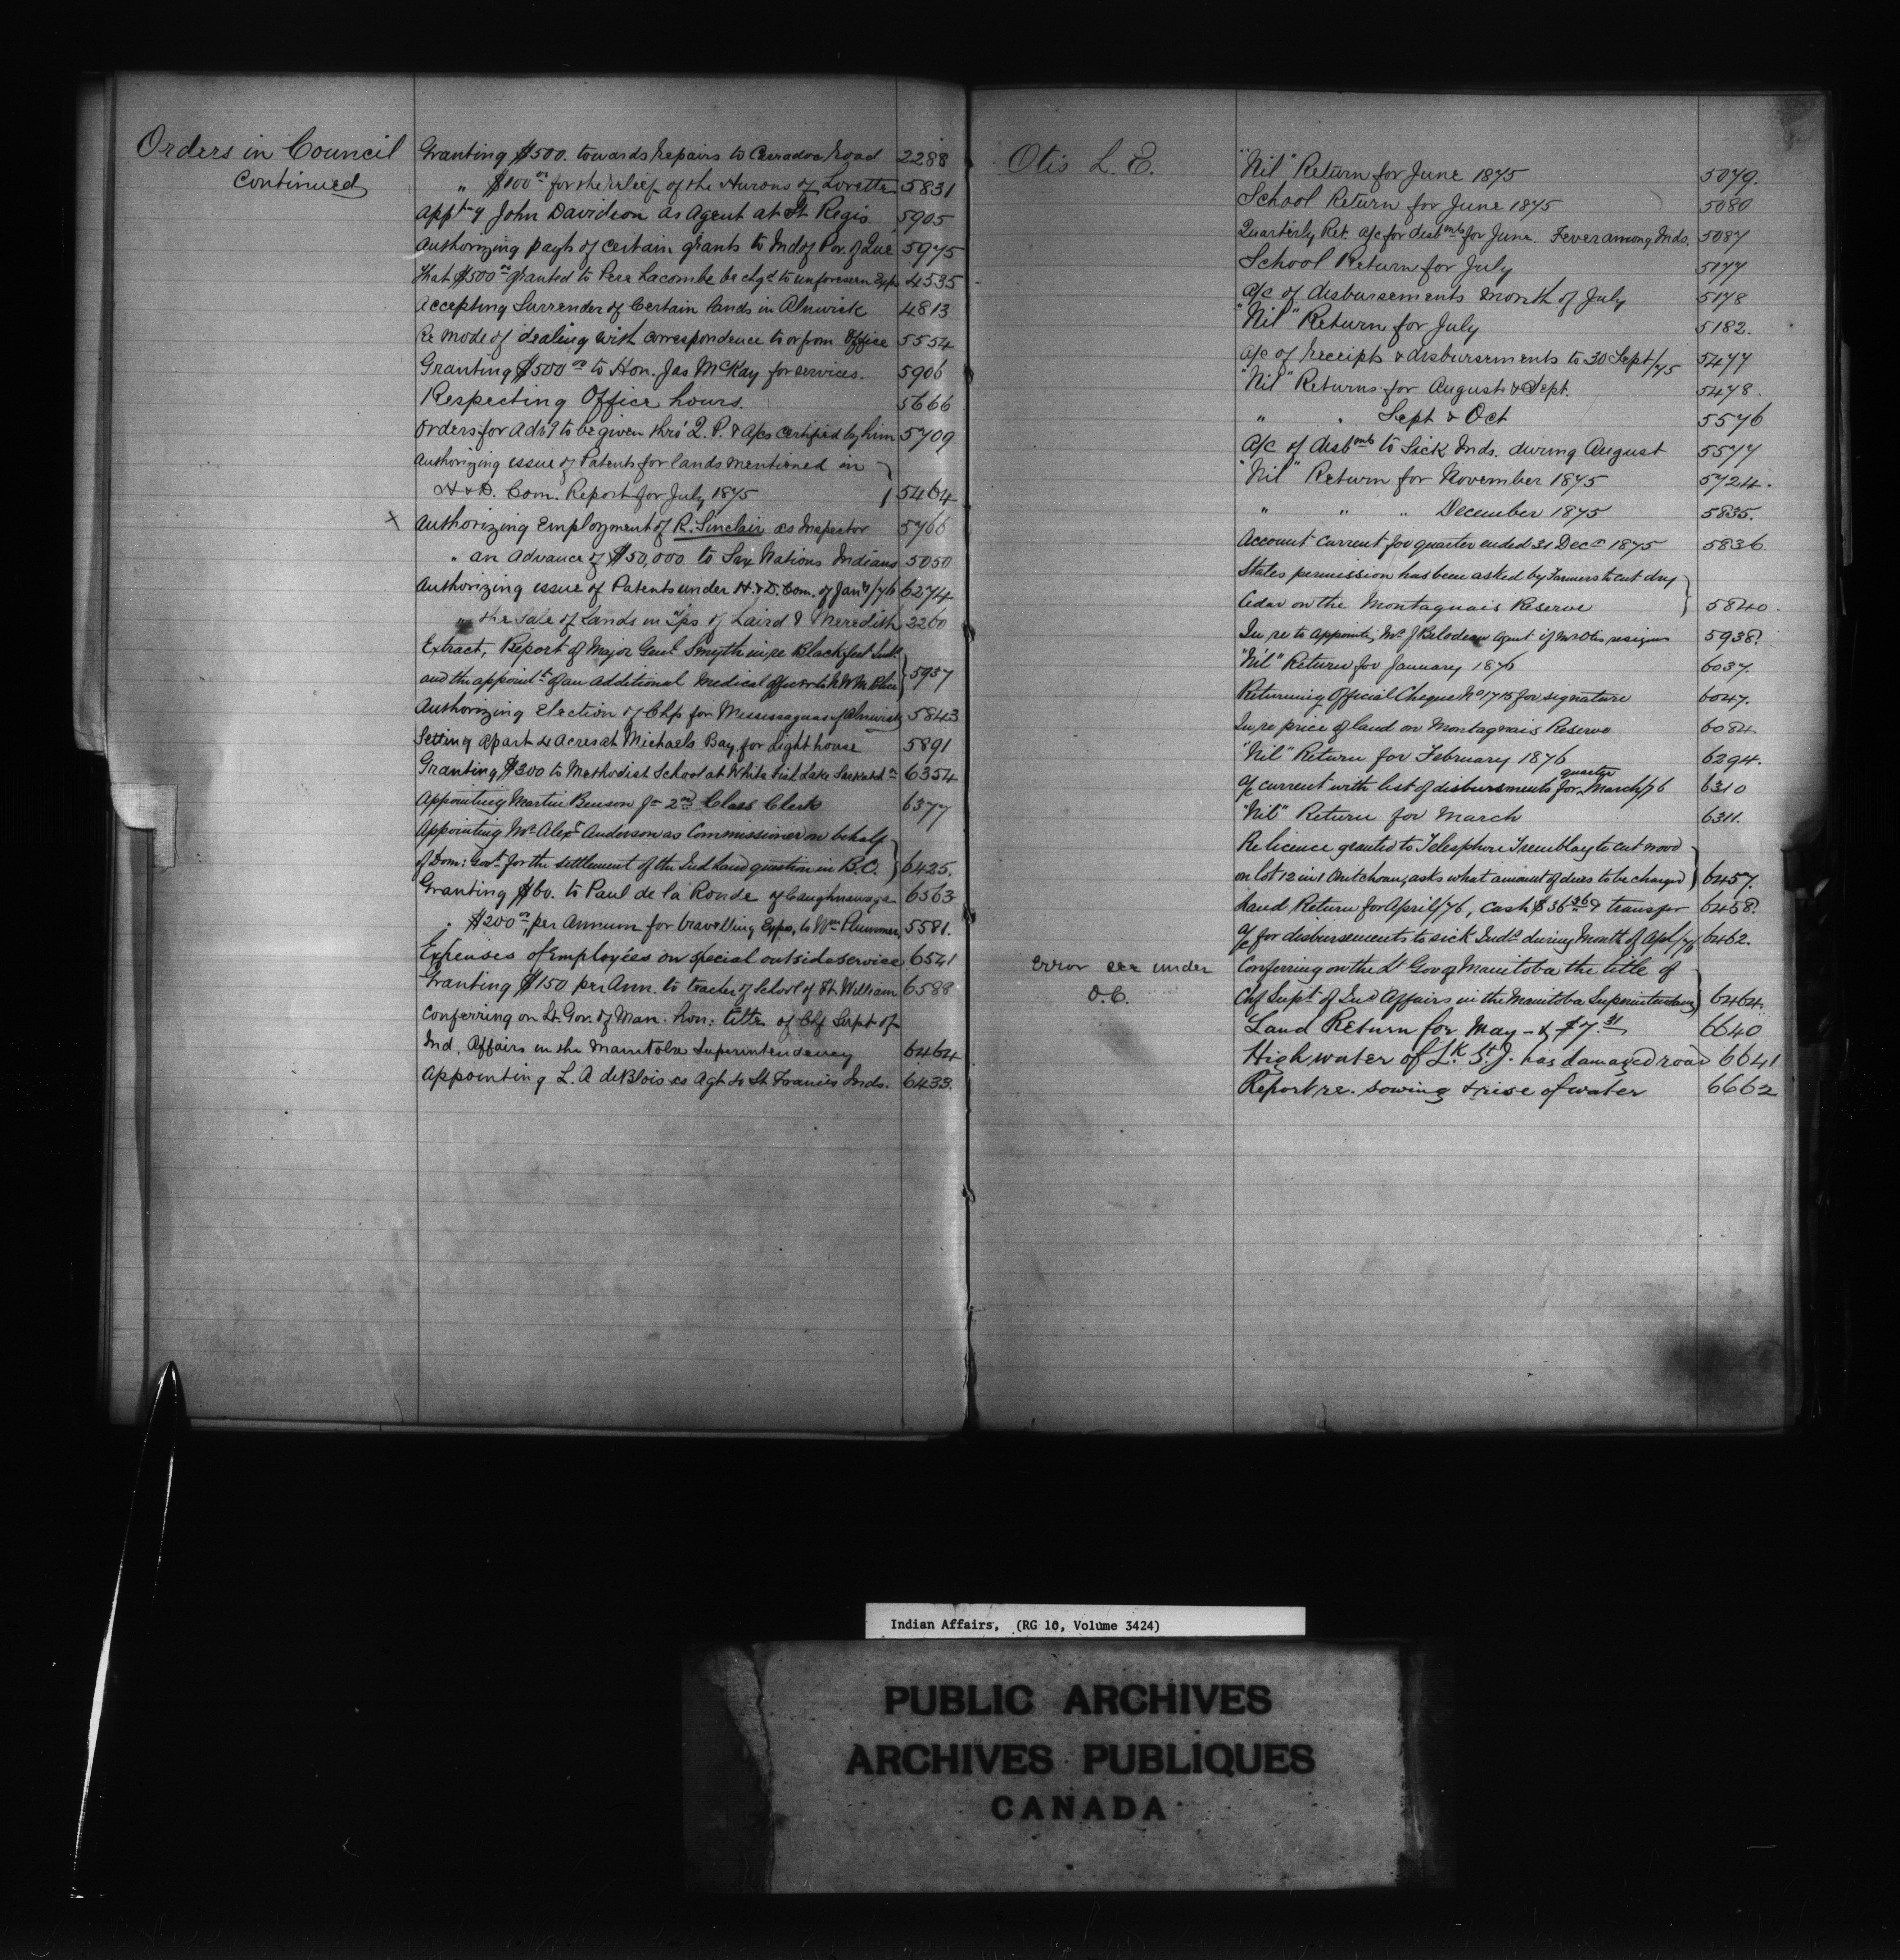 Orders in Council
Continued
Granting $500. towards repairs to Caradoc Road 2288
" $100 00 for the relief of the Hurons of Lorette 5831
Appt g John Davidson as Agent at St Regis 5905
Authorizing payt of certain grants to Ind of Pov. of Que 5975
That $500 00 granted to Pere Lacombe be chgd to unforeseen Exps 4535
Accepting Surrender of Certain lands in Alnwick 4813
Re mode of dealing with correspondence to or from Office 5554
Granting $500 00 to Hon. Jas McKay for services. 5906
Respecting Office hours. 5666
Orders for Advt to be given thro' Q. P. & A/cs Certified by him 5709
Authorizing issue of Patents for lands mentioned in
H & D. Com. Report for July 1875 5464
x Authorizing Employment of R. Sinclair as Inspector 5766
" an Advance of $50,000. to Six Nations Indians 5050
Authorizing issue of Patents under H. & D. Com. of Jany/76 6274
" the Sale of Lands in Tps of Laird & Meredith 2260
Extract, Report of Major Genl Smyth in re Blackfeet Inds.
and the appoint t of an Additional Medical Officer to N W M Police 5957
Authorizing Election of Chfs for Mississaguas of Alnwick 5843
Setting apart 4 Acres at Michaels Bay for Light house 5891
Granting $300 to Methodist School at White Fish Lake Saskatchn 6354
Appointing Martin Benson Jr 2nd Class Clerk 6377
Appointing Mr Alexr Anderson as Commissioner on behalf
of Dom: Govt for the settlement of the Ind Land question in B.C. 6425.
Granting $60. to Paul de la Ronde of Caughnawaga 6563
" $200 00 per Annum for travelling Expns, to Wm Plummer, 5581.
Expenses of Employées on special outside service 6541
Granting $150 per Ann. to teacher of School of Ft William 6588
Conferring on Lt. Gov. of Man. hon: title of Chf Supt of
Ind. Affairs in the Manitoba Superintendency 6464
Appointing L. A de Blois as Agt to St Francis Inds. 6433.
Otis L. E.
"Nil" Return for June 1875 5079.
School Return for June 1875 5080
Quarterly Ret. a/c for disbmts for June. Fever among Inds. 5087
School Return for July 5177
A/c of disbursements month of July 5178
"Nil" Return for July 5182.
A/c of receipts & disbursements to 30 Sept/75 5477
"Nil" Returns for August & Sept. 5478.
" " Sept & Oct 5576
A/c of disbmts to Sick Inds. during August 5577
"Nil" Return for November 1875 5724.
" " " December 1875 5835.
Account Current for quarter ended 31 Decr 1875 5836
States permission has been asked by Farmers to cut dry
Cedar on the Montagnais Reserve 5840.
In re to appointg Mr J Belodeau agent if Mr Otis resigns 5938.
"Nil" Return for January 1876 6037.
Returning Official Cheque No 1715 for signature 6047.
In re price of land on Montagnais Reserve 6084
"Nil" Return for February 1876 6294.
A/c current with list of disbursments for quarter March/76 6310
"Nil" Return for March 6311.
Re licence granted to Telesphore Tremblay to cut wood
on lot 12 in 1 Ouitchoan, asks what amount of dues to be charged 6457.
Land Return for April/76, Cash $36 26 & transfer 6458.
A/c for disbursements to sick Inds during Month of Apl/76 6462.
Error see under
O.C.
Conferring on the Lt Gov of Manitoba the title of
Chf Supt. of Ind Affairs in the Manitoba Superintendency 6464.
Land Return for May - & $7.31 6640
High water of Lk St J. has damaged road 6641
Report re. sowing & rise of water 6662
Indian Affairs, (RG 10, Volume 3424)
PUBLIC ARCHIVES
ARCHIVES PUBLIQUES
CANADA